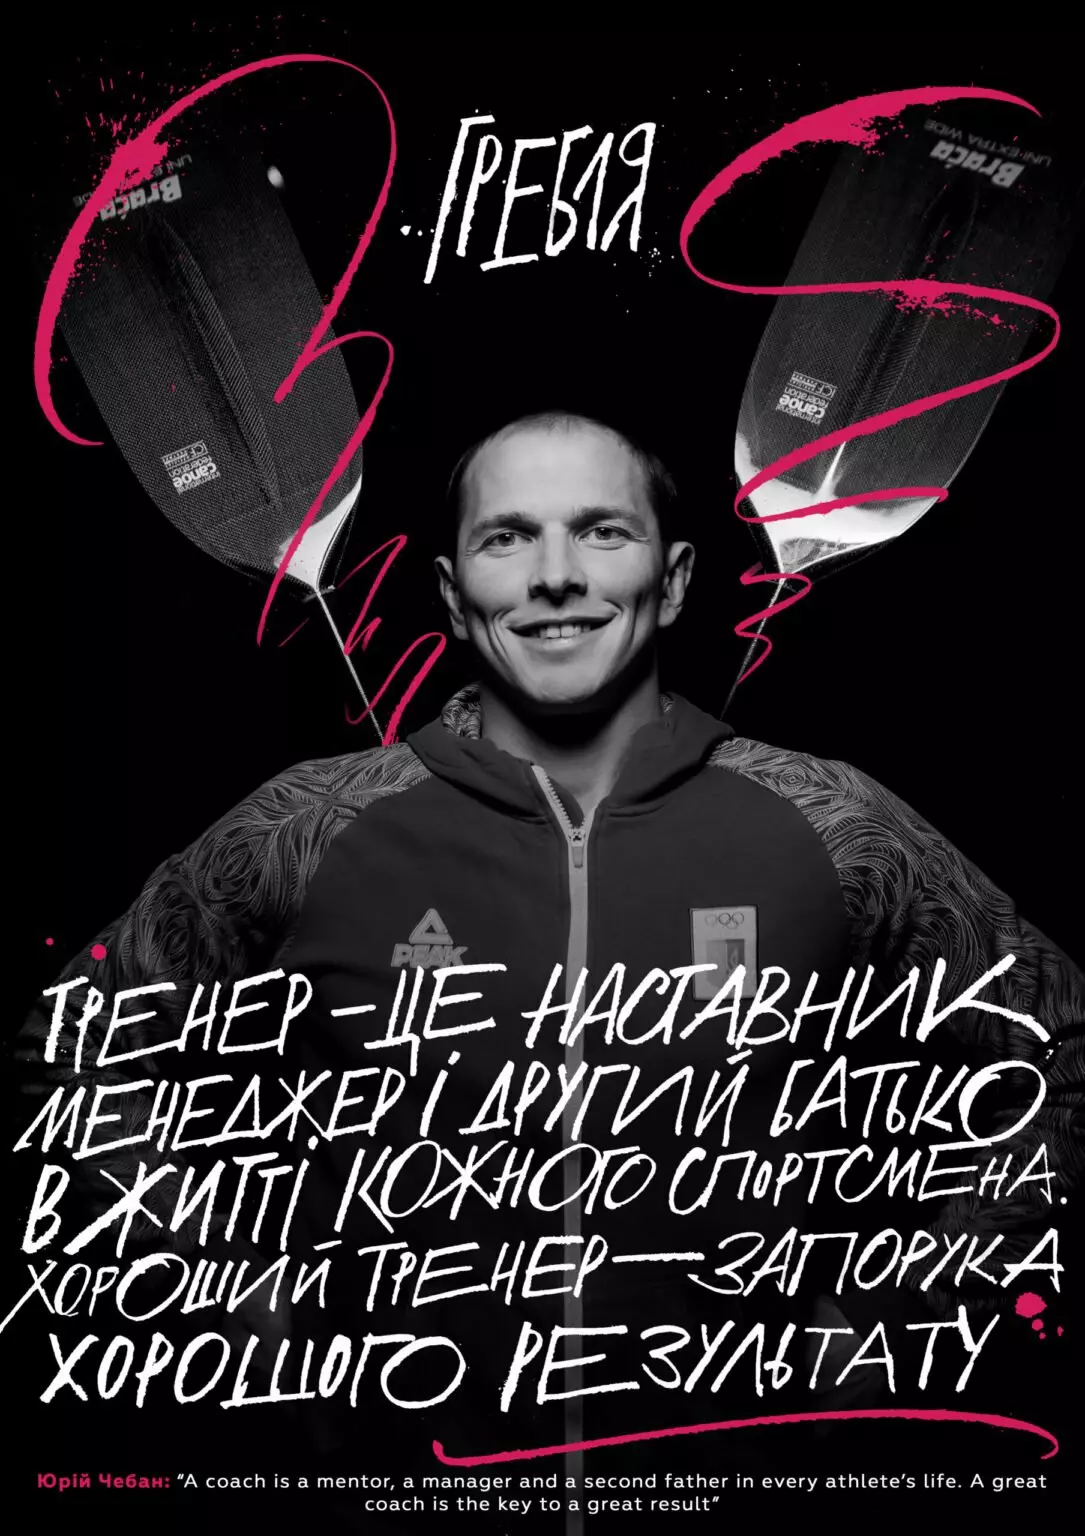 ГРЕБЛЯ
UNI-EXTRA WIDE
Braca
UNI-EXTRA WIDE
Braca
ICF
international
canoe
federation
ICF
international
canoe
federation
PEAK
ТРЕНЕР – ЦЕ НАСТАВНИК
МЕНЕДЖЕР І ДРУГИЙ БАТЬКО
В ЖИТТІ КОЖНОГО СПОРТСМЕНА.
ХОРОШИЙ ТРЕНЕР — ЗАПОРУКА
ХОРОШОГО РЕЗУЛЬТАТУ
Юрій Чебан: “A coach is a mentor, a manager and a second father in every athlete’s life. A great
coach is the key to a great result”